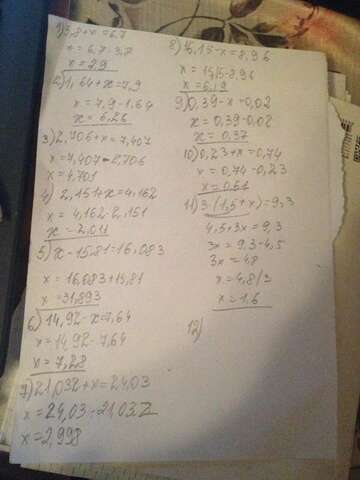 1) 3,8+x=6,7
x=6,7-3,7
x=2,9
2) 1,64+x=7,9
x=7,9-1,64
x=6,26
3) 2,706+x=7,407
x=7,407-2,706
x=4,701
4) 2,151+x=4,162
x=4,162-2,151
x=2,011
5) x-15,81=16,083
x=16,083+15,81
x=31,893
6) 14,92-x=7,64
x=14,92-7,64
x=7,28
7) 21,032+x=24,03
x=24,03-21,032
x=2,998
8) 15,15-x=8,96
x=15,15-8,96
x=6,19
9) 0,39-x=0,02
x=0,39-0,02
x=0,37
10) 0,23+x=0,74
x=0,74-0,23
x=0,51
11) 3·(1,5+x)=9,3
4,5+3x=9,3
3x=9,3-4,5
3x=4,8
x=4,8/3
x=1,6
12)